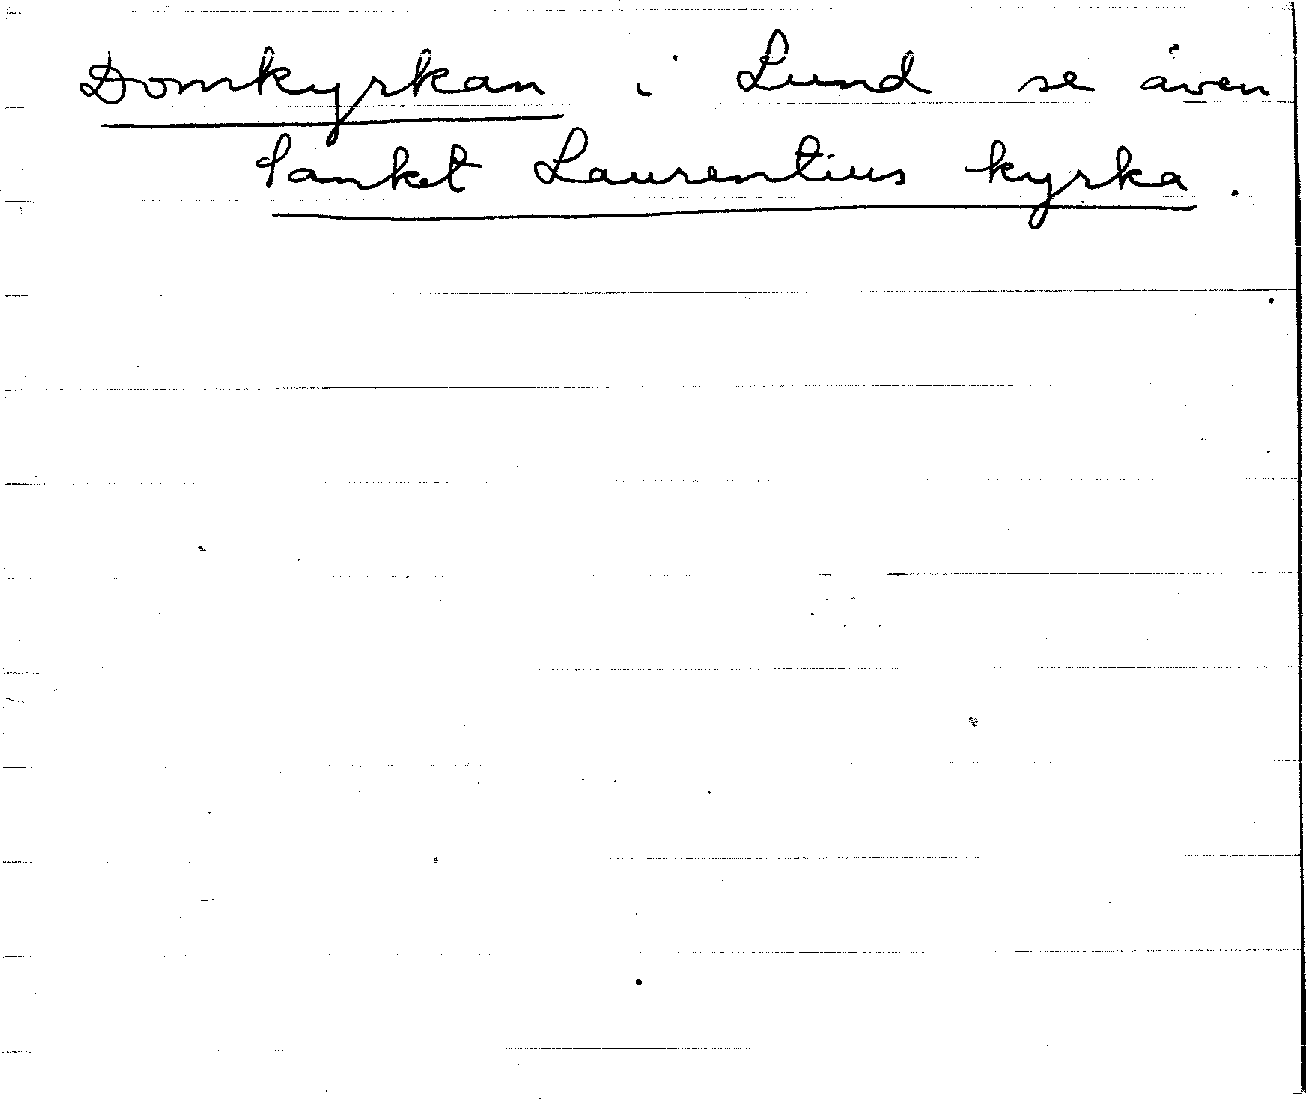 Domkyrkan i Lund se även
Sanket Laurentius kyrka.